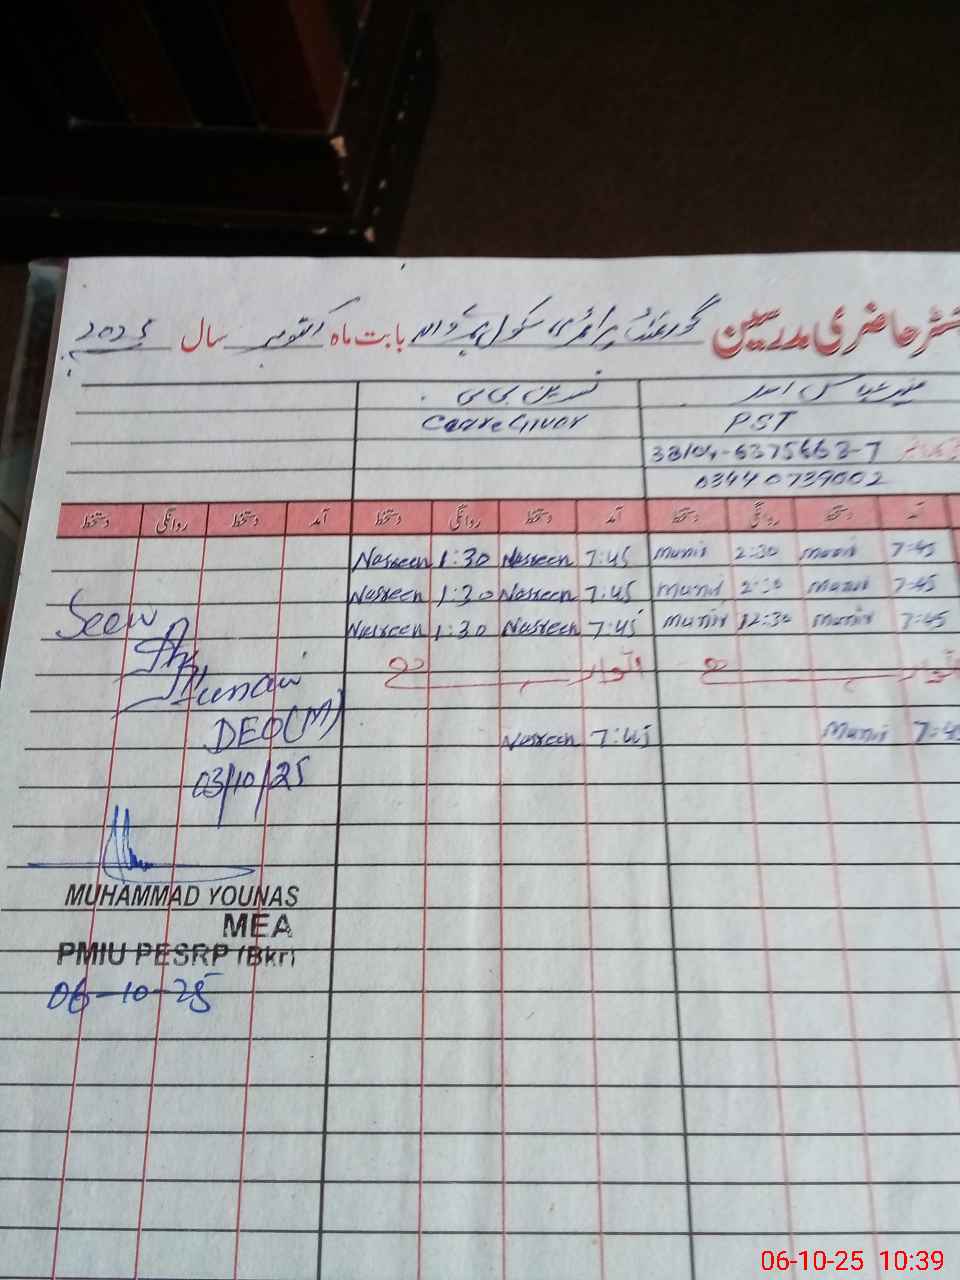 رجسٹر حاضری مدرسین گورنمنٹ پرائمری سکول بابت ماہ اکتوبر سال 2025
منیر عباس نسرین بی بی
PST CareGiver
0344 0739002
آمد دستخط روانگی دستخط آمد دستخط روانگی دستخط آمد دستخط روانگی دستخط
Nasreen 1:30 Nasreen 7:45 Munir 2:30 Munir 7:45
Nasreen 1:30 Nasreen 7:45 Munir 2:30 Munir 7:45
Nasreen 1:30 Nasreen 7:45 Munir 12:30 Munir 7:45
Seen
اتوار اتوار
DEO(M)
Nasreen 7:45 Munir 7:45
03/10/25
MUHAMMAD YOUNAS
MEA
PMIU PESRP (Bkr)
06-10-25
06-10-25 10:39